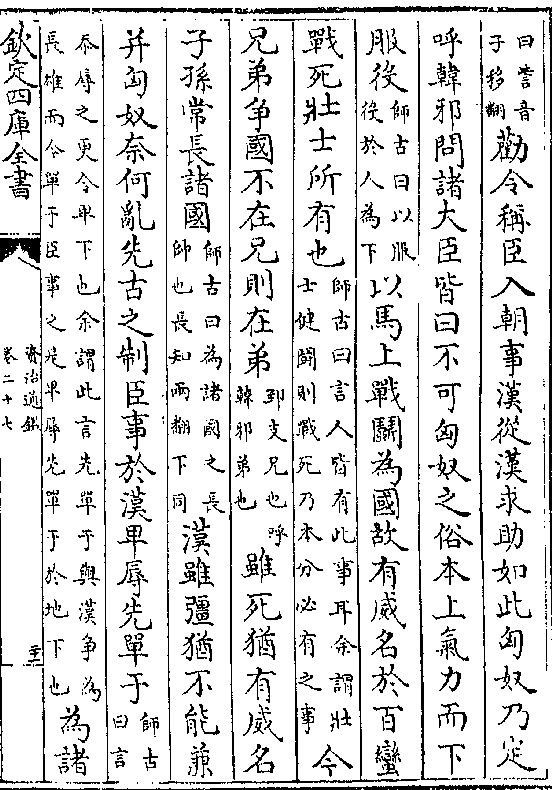 曰訾音
子移翻
勸令稱臣入朝事漢從漢求助如此匈奴乃定
呼韓邪問諸大臣皆曰不可匈奴之俗本上氣力而下
服役
師古曰以服
役於人為下
以馬上戰鬭為國故有威名於百蠻
戰死壯士所有也
師古曰言人皆有此事耳余謂壯
士健鬬則戰死乃本分必有之事
今
兄弟争國不在兄則在弟
郅支兄也呼
韓邪弟也
雖死猶有威名
子孫常長諸國
師古曰為諸國之長
帥也長知兩翻下同
漢雖彊猶不能兼
并匈奴奈何亂先古之制臣事於漢卑辱先單于
師古
曰言
忝辱之更令卑下也余謂此言先單于與漢争為
長雄而今單于臣事之是卑辱先單于於地下也
為諸
欽定四庫全書
資治通鑑
卷二十七